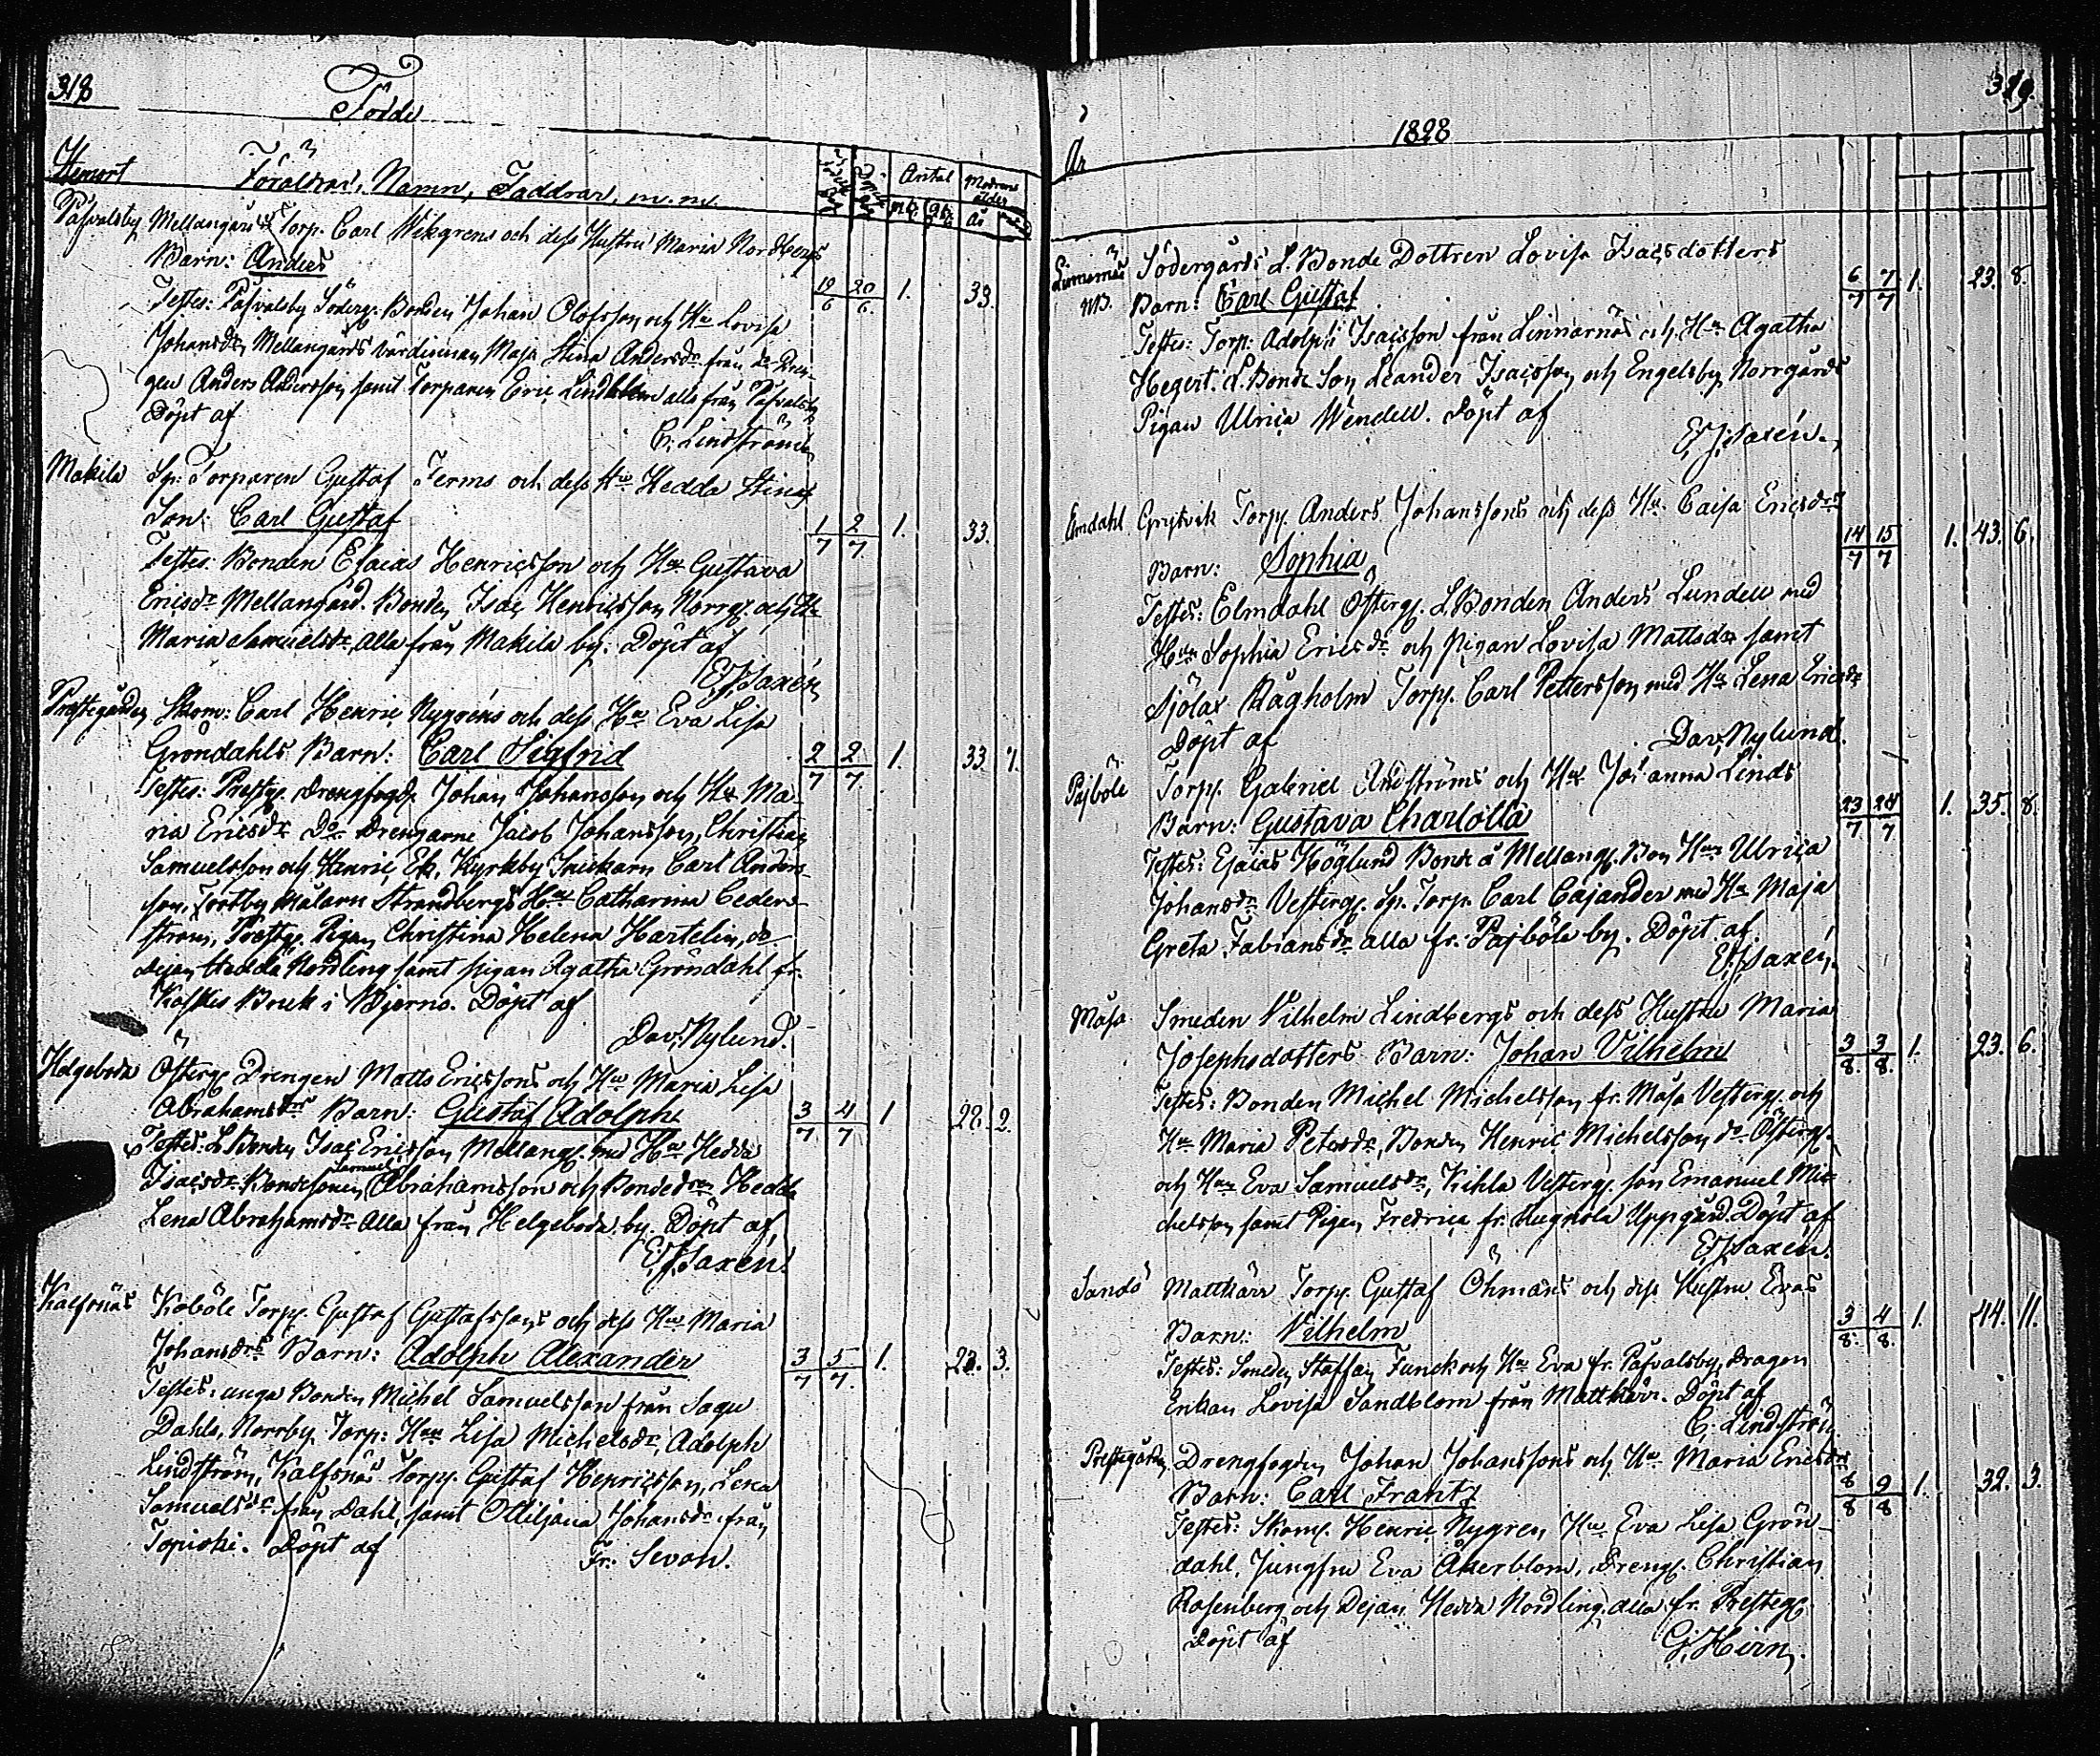 318
Födde
Hemort Föräldrar, Namn, Faddrar, m. m. Antal Modrens ålder
år
Påfvalsby Mellangårds Torp. Carl Wikgrens och dess Hustru Maria Nordbergs
Barn: Anders
19/6 20/6. 1. 33.
Testes: Påfvalsby Söderg. Bonden Johan Olofsson och Hu Lovisa
Johansdr, Mellangårds värdinnan Maja Stina Andersdr från do Dren-
gen Anders Andersson samt Torparen Eric Lindblom alla från Påfvalsby
Döpt af
C. Lindström
Makila Sp: Torparen Gustaf Ferms och dess Hu Hedda Stinas
Son: Carl Gustaf
1/7 2/7 1. 33.
Testes: Bonden Esaias Henricsson och Hu Gustava
Ericsdr Mellangård. Bonden Isac Henricsson Norrg. och Hu
Maria Samuelsdr, alla från Makila by. Döpt af
E.J. Saxén
Prestegården Skom: Carl Henric Nygréns och dess Hu Eva Lisa
Gröndahls Barn: Carl Sigfrid
2/7 2/7. 1. 33. 7.
Testes: Prestg. Drengfogd. Johan Johansson och Hu Ma-
ria Ericsdr Do Drengarne Jacob Johansson, Christian
Samuelsson och Henric Ek, Kyrkby Snickarn Carl Anders-
son, Tortby Målarn Strandbergs Hu Catharina Ceder-
ström, Prestg. Pigan Christina Helena Hartelin, do
Dejan Hedda Nordling samt pigan Agatha Gröndahl fr.
Koskis Bruk i Bjerno. Döpt af
Dav. Nylund.
Helgeboda Österg. Drengen Matts Ericssons och Hu Maria Lisa
Abrahamsdrs Barn: Gustaf Adolph
3/7 4/7 1 28. 2.
Testes: L. Bonden Isac Ericsson Mellang. med Hu Hedda
Isacsdr Bondesonen Samuel Abrahamsson och Bondedren Hedda
Lena Abrahamsdr Alla från Helgeboda by. Döpt af
E.J. Saxén.
Kalfsnäs Koböle Torp. Gustaf Gustafssons och dess Hu Maria
Johansdrs Barn: Adolph Alexander
3/7 5/7. 1. 3.
Testes: unga Bonden Michel Samuelsson från Sagu
Dahls, Norrby Torp: Hu Lisa Michelsdr, Adolph
Lindström, Kalfsnäs Torp. Gustaf Henricsson, Lena
Samuelsdr från Dahl, samt Ottiljana Johansdr från
Topiski. Döpt af Fr. Sevon.
319.
År 1828
Linnarnäs Södergårds L. Bonde Dottren Lovisa Isacsdotters
NB. Barn: Carl Gustaf
6/7 7/7 1. 23. 8.
Testes: Torp: Adolph Isacsson från Linnarnäs och Hu Agatha
Hegert. L. Bonde Son Leander Isacsson och Engelsby Norrgårds
Pigan Ulrica Wendell. Döpt af
E.J. Saxén.
Elmdahl Grytvik Torp. Anders Johanssons och dess Hu Caisa Ericsdrs
Barn: Sophia
14/7 15/7 1. 43. 6.
Testes: Elmdahl Österg. L. Bonden Anders Lundell med
Hu Sophia Ericsdr och Pigan Lovisa Mattsdr samt
Sjölax Rågholm Torp. Carl Pettersson med Hu Lena Ericsdr
Döpt af Dav. Nylund.
Pajböle Torp. Gabriel Andströms och Hu Johanna Linds
Barn: Gustava Charlotta
23/7 24/7 1. 35. 8.
Testes: Esaias Höglund Bonde å Mellang. Bon Hu Ulrica
Johansdr Vesterg. Sp. Torp. Carl Cajander med Hu Maja
Greta Fabiansdr alla fr. Pajböle by. Döpt af
E.J. Saxén.
Måsa Smeden Vilhelm Lindbergs och dess Hustru Maria
Josephsdotters Barn: Johan Vilhelm
3/8. 3/8. 1. 23. 6.
Testes: Bonden Michel Michelsson fr. Måsa Vesterg. och
Hu Maria Petersdr, Bonden Henric Michelsson do Österg.
och Hu Eva Samuelsdr, Kihla Vesterg. son Emanuel Mi-
chelsson samt Pigan Fredrica fr. Hugnola Uppgård. Döpt af
E.J. Saxén.
Sandö Mattkärr Torp. Gustaf Öhmans och dess Hustru Evas
Barn: Vilhelm
3/8. 4/8. 1. 44. 11.
Testes: Smeden Staffan Funck och Hu Eva fr. Påfvalsby, Dragon
Enkan Lovisa Sandblom från Mattkärr. Döpt af
C. Lindström
Prestegården Drengfogden Johan Johanssons och Hu Maria Ericsdrs
Barn: Carl Frantz
8/8 9/8 1. 32. 3.
Testes: Skom. Henric Nygren, Hu Eva Lisa Grön-
dahl, Jungfru Eva Åkerblom, Dreng. Christian
Rosenberg och Dejan Hedda Nordling, alla fr. Presteg.
Döpt af G. Hirn.